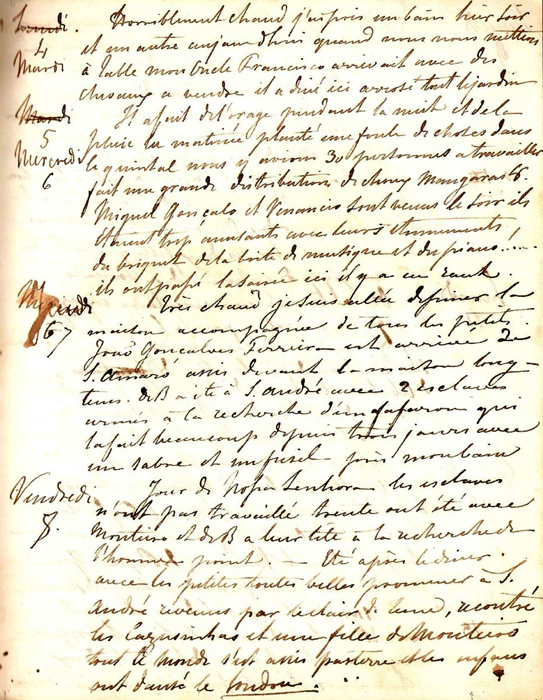 Lundi. Horriblement chaud j'ai pris un bain hier soir
4 et un autre aujourd'hui quand nous nous mettions
Mardi à table mon Oncle Francisco arrivait avec des
chevaux a vendre il a diné ici arrosé tout le jardin
Mardi Il a fait de l'orage pendant la nuit et de la
5 pluie la matinée planté une foule de choses dans
Mercredi le quintal nous y avions 30 personnes a travailler
6 fait une grande distribution de choux Mangaras &
Miguel Gonçalo et Venancio sont venus le soir ils
étaient trop amusants avec leurs étonnements
du briquet de la boite de musique et du piano.....!
ils ont passé la soirée ici il y a eu
Très chaud je suis allée dessiner la
67 maison accompagnée de tous les petits
João Gonçalves Ferreira est arrivé de
S. Amaro assis devant la maison long-
tems. de B a été à S. André avec 2 esclaves
armés à la recherche d'un qui
la fait beaucoup depuis trois jours avec
un sabre et un fusil près moulin
Vendredi Jour de Nossa Senhora les esclaves
8. n'ont pas travaillé trente ont été avec
Monteiro et de B a leur tête à la recherche de
l'homme point. — Eté après le diner.
avec les petites toutes belles promener à S.
André revenus par le clair de lune, recontré
les et une fille de Monteiros
tout le monde s'est assis par terre et les enfans
ont dansé le londou.